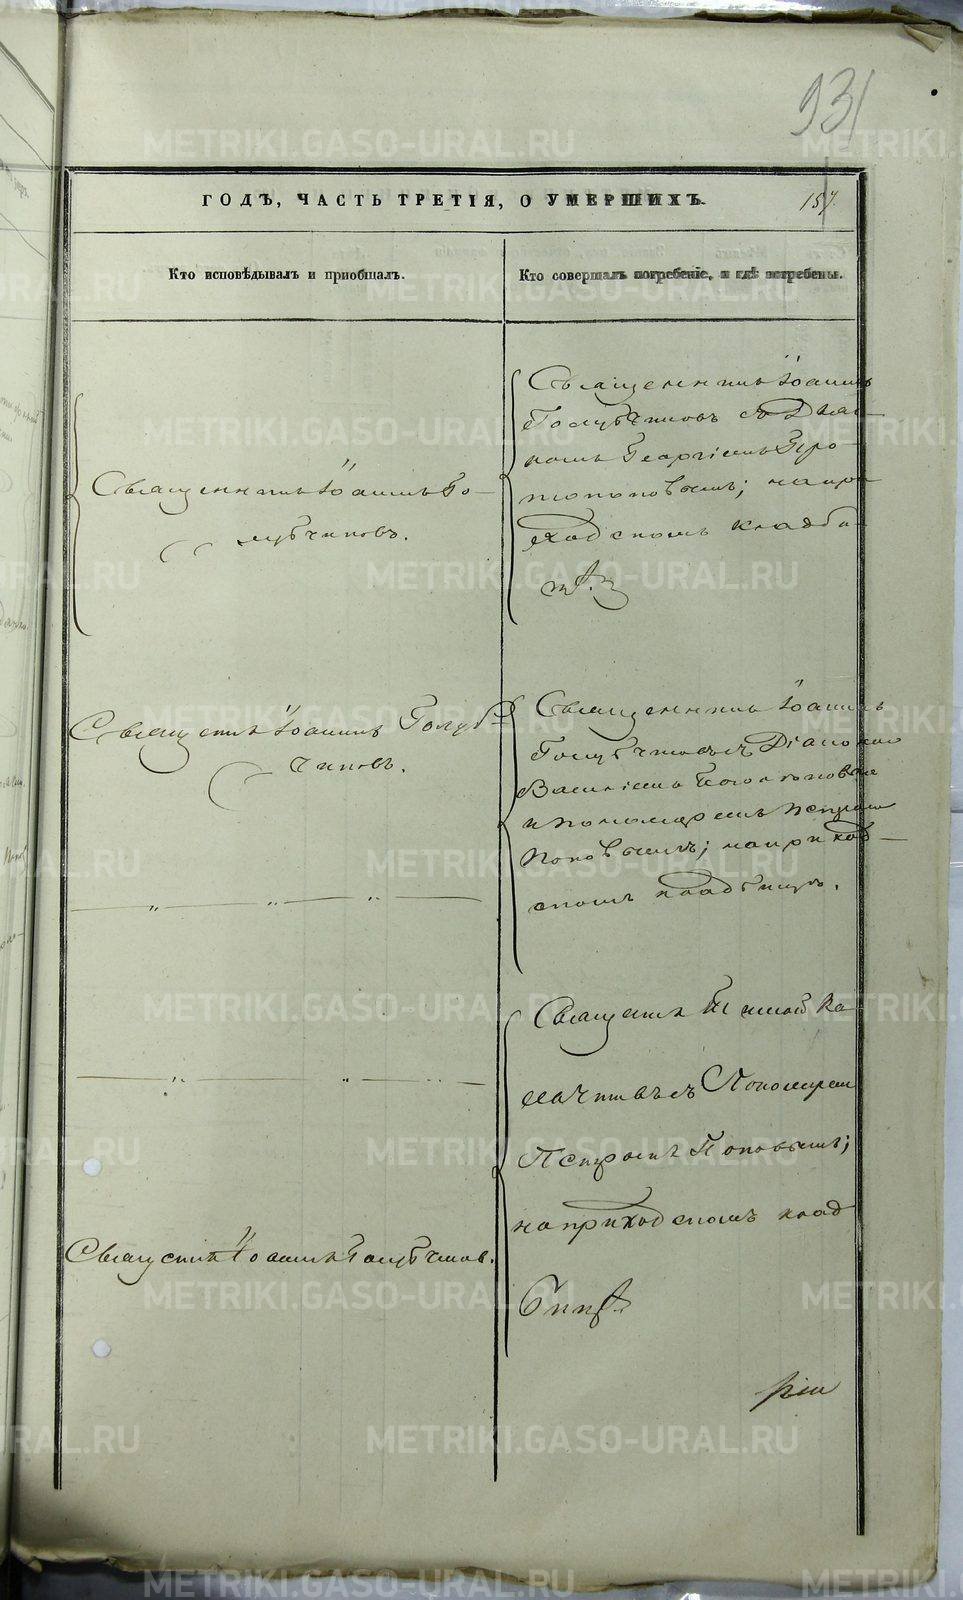 931
ГОДЪ, ЧАСТЬ ТРЕТІЯ, О УМЕРШИХЪ.
157.
Кто исповѣдывалъ и пріобщалъ.
Кто совершалъ погребеніе, и гдѣ погребены.
Священникъ Іоаннъ Го-
лубчиковъ.
Священникъ Іоаннъ
Голубчиковъ съ Діако-
номъ Георгіемъ Про-
топоповымъ; на при-
ходскомъ кладби-
щѣ.
Священикъ Іоаннъ Голуб-
чиковъ.
Священникъ Іоаннъ
Голубчиковъ съ Діакономъ
Василіемъ
и Пономаремъ Петромъ
Поповымъ; на приход-
скомъ кладбищѣ.
Священикъ
съ Пономаремъ
Петромъ Поповымъ;
на приходскомъ клад
бищѣ.
Священикъ Іоаннъ Голубчиковъ.
METRIKI.GASO-URAL.RU